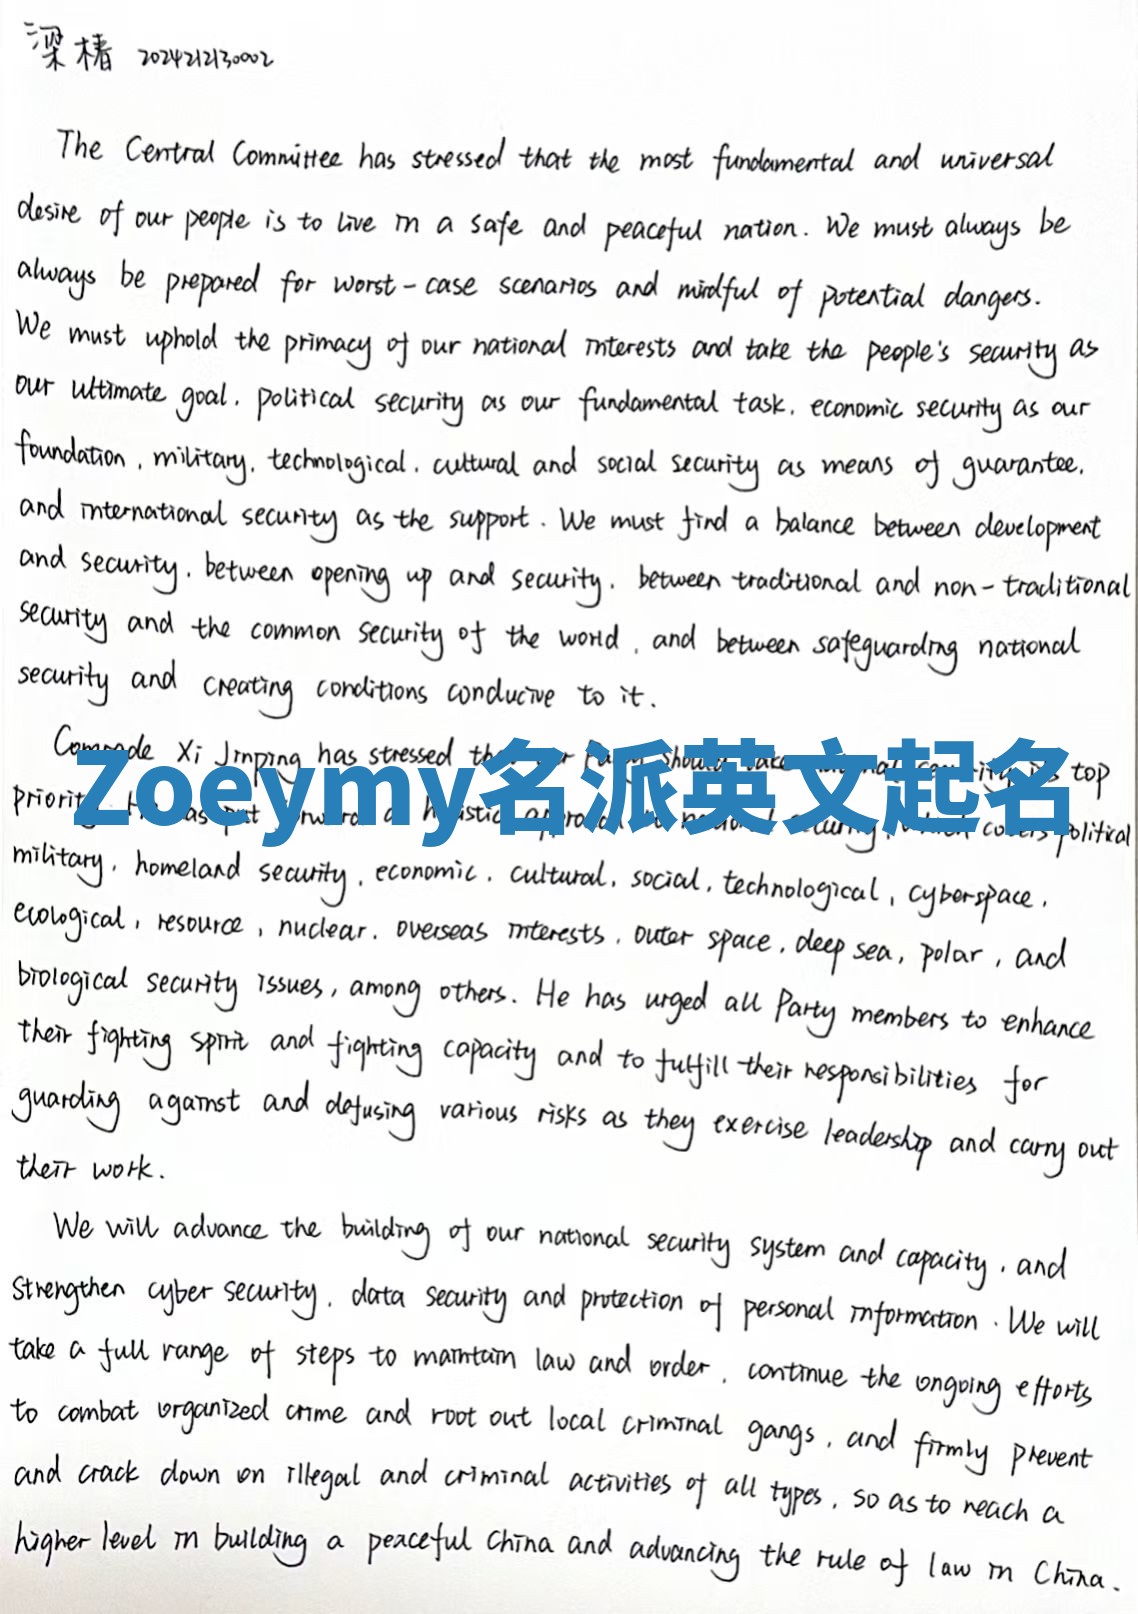 梁椿 2024212130002
The Central Committee has stressed that the most fundamental and universal
desire of our people is to live in a safe and peaceful nation. We must always be
always be prepared for worst-case scenarios and mindful of potential dangers.
We must uphold the primacy of our national interests and take the people's security as
our ultimate goal, political security as our fundamental task, economic security as our
foundation, military, technological, cultural and social security as means of guarantee,
and international security as the support. We must find a balance between development
and security, between opening up and security, between traditional and non-traditional
security and the common security of the world, and between safeguarding national
security and creating conditions conducive to it.
Comrade Xi Jinping has stressed should take top
Zoeymy名派英文起名
put forward a holistic approach national security, which covers political
military, homeland security, economic, cultural, social, technological, cyberspace,
ecological, resource, nuclear, overseas interests, outer space, deep sea, polar, and
biological security issues, among others. He has urged all Party members to enhance
their fighting spirit and fighting capacity and to fulfill their responsibilities for
guarding against and defusing various risks as they exercise leadership and carry out
their work.
We will advance the building of our national security system and capacity, and
strengthen cyber security, data security and protection of personal information. We will
take a full range of steps to maintain law and order, continue the ongoing efforts
to combat organized crime and root out local criminal gangs, and firmly prevent
and crack down on illegal and criminal activities of all types, so as to reach a
higher level in building a peaceful China and advancing the rule of law in China.